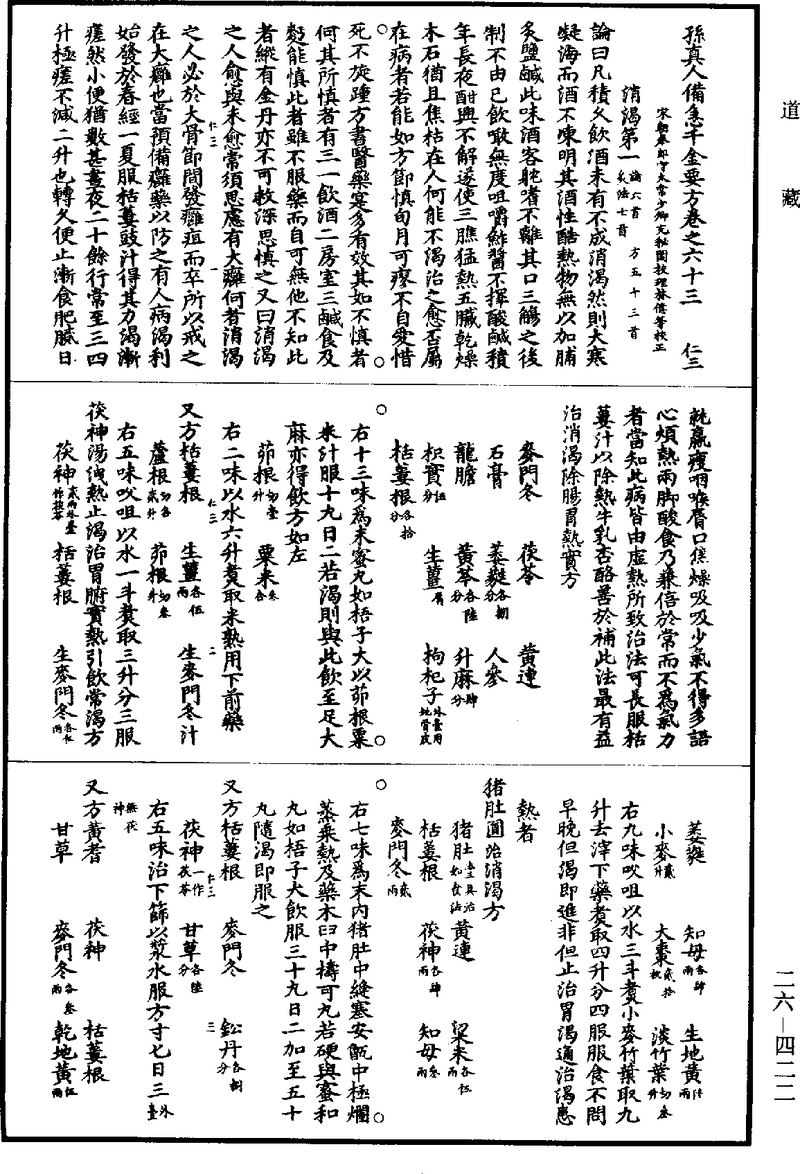 道藏
孫真人備急千金要方卷之六十三 仁三
宋朝奉郎守太常少卿充秘閣校理林億等校正
消渴第一論六首 方五十三首 灸法七首
論曰凡積久飲酒未有不成消渴然則大寒
凝海而酒不凍明其酒性酷熱物無以加脯
炙鹽鹹此味酒客躭者不離其口三觴之後
制不由己飲噉無度咀嚼鮓醬不擇酸鹹積
年長夜酣興不解遂使三膲猛熱五臟乾燥
木石猶且焦枯在人何能不渴治之愈否屬
在病者若能如方節慎旬月可瘳不自愛惜
死不旋踵方書醫藥寔多有效其如不慎者
何其所慎者有三一飲酒二房室三鹹食及
麪能慎此者雖不服藥而自可無他不知此
者縱有金丹亦不可救深思慎之又曰消渴
之人愈與未愈常須思慮有大癰何者消渴
仁三 一
之人必於大骨節間發癰疽而卒所以戒之
在大癰也當預備癰藥以防之有人病渴利
始發於春經一夏服栝蔞豉汁得其力渴漸
瘥然小便猶數甚晝夜二十餘行常至三四
升極瘥不減二升也轉久便止漸食肥膩日
就羸瘦咽喉脣口焦燥吸吸少氣不得多語
心煩熱兩脚酸食乃兼倍於常而不爲氣力
者當知此病皆由虛熱所致治法可長服栝
蔞汁以除熱牛乳杏酪善於補此法最有益
治消渴除腸胃熱實方
麥門冬 茯苓 黃連
石膏 萎蕤各捌分 人參
龍膽 黃芩各陸分 升麻肆分
枳實伍分 生薑屑 枸杞子外臺用地骨皮
栝蔞根各拾分
右十三味爲末蜜丸如梧子大以茆根粟
米汁服十丸日二若渴則與此飲至足大
麻亦得飲方如左
茆根切壹升 粟米叁合
右二味以水六升煑取米熟用下前藥
仁三 二
又方栝蔞根 生薑各伍兩 生麥門冬汁
蘆根切各貳升 茆根切叁升
右五味㕮咀以水一斗煑取三升分三服
茯神湯洩熱止渴治胃腑實熱引飲常渴方
茯神貳兩外臺作茯苓 栝蔞根 生麥門冬各伍兩
萎蕤 知母各肆兩 生地黃陸兩
小麥貳升 大棗貳拾枚 淡竹葉切叁升
右九味㕮咀以水三斗煑小麥竹葉取九
升去滓下藥煑取四升分四服服食不問
早晚但渴即進非但止治胃渴通治渴患
熱者
猪肚圓治消渴方
猪肚壹具治如食法 黃連 粱米各伍兩
栝蔞根 茯神各肆兩 知母叁兩
麥門冬貳兩
右七味爲末內猪肚中縫塞安甑中極爛
蒸乗熱及藥木臼中擣可丸若硬與蜜和
丸如梧子大飲服三十丸日二加至五十
丸隨渴即服之
又方栝蔞根 麥門冬 鈆丹各捌分
仁三 三
茯神一作茯苓 甘草各陸分
右五味治下篩以漿水服方寸匕日三外臺
無茯神
又方黃耆 茯神 栝蔞根
甘草 麥門冬各叁兩 乾地黃伍兩
二六—四二二